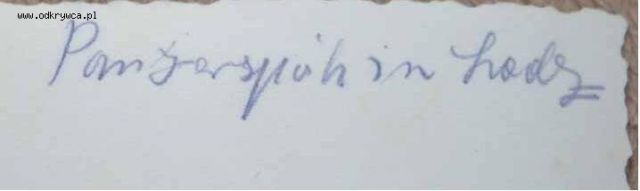 www.odkrywca.pl
Panzerspäh in Lodz